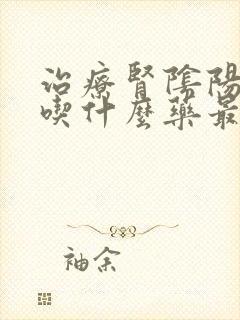 治療腎陰陽
喫什麼藥最
袖余